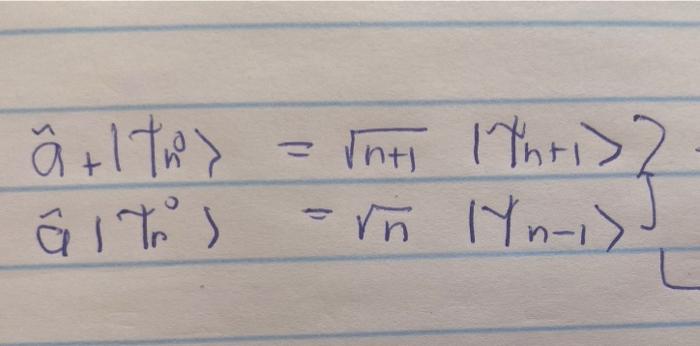 â₊|ψₙ⁰⟩ = √(n+1) |ψₙ₊₁⟩
â|ψₙ⁰⟩ = √n |ψₙ₋₁⟩